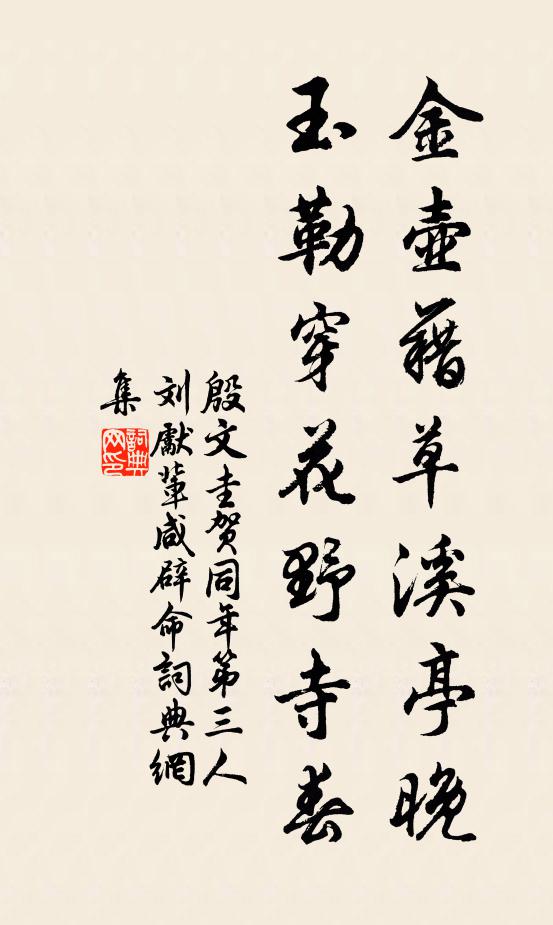 金壺藉草溪亭晚
玉勒穿花野寺春
殷文圭贺同年第三人
刘獻輩咸辟命詞典網
集
詞典網印